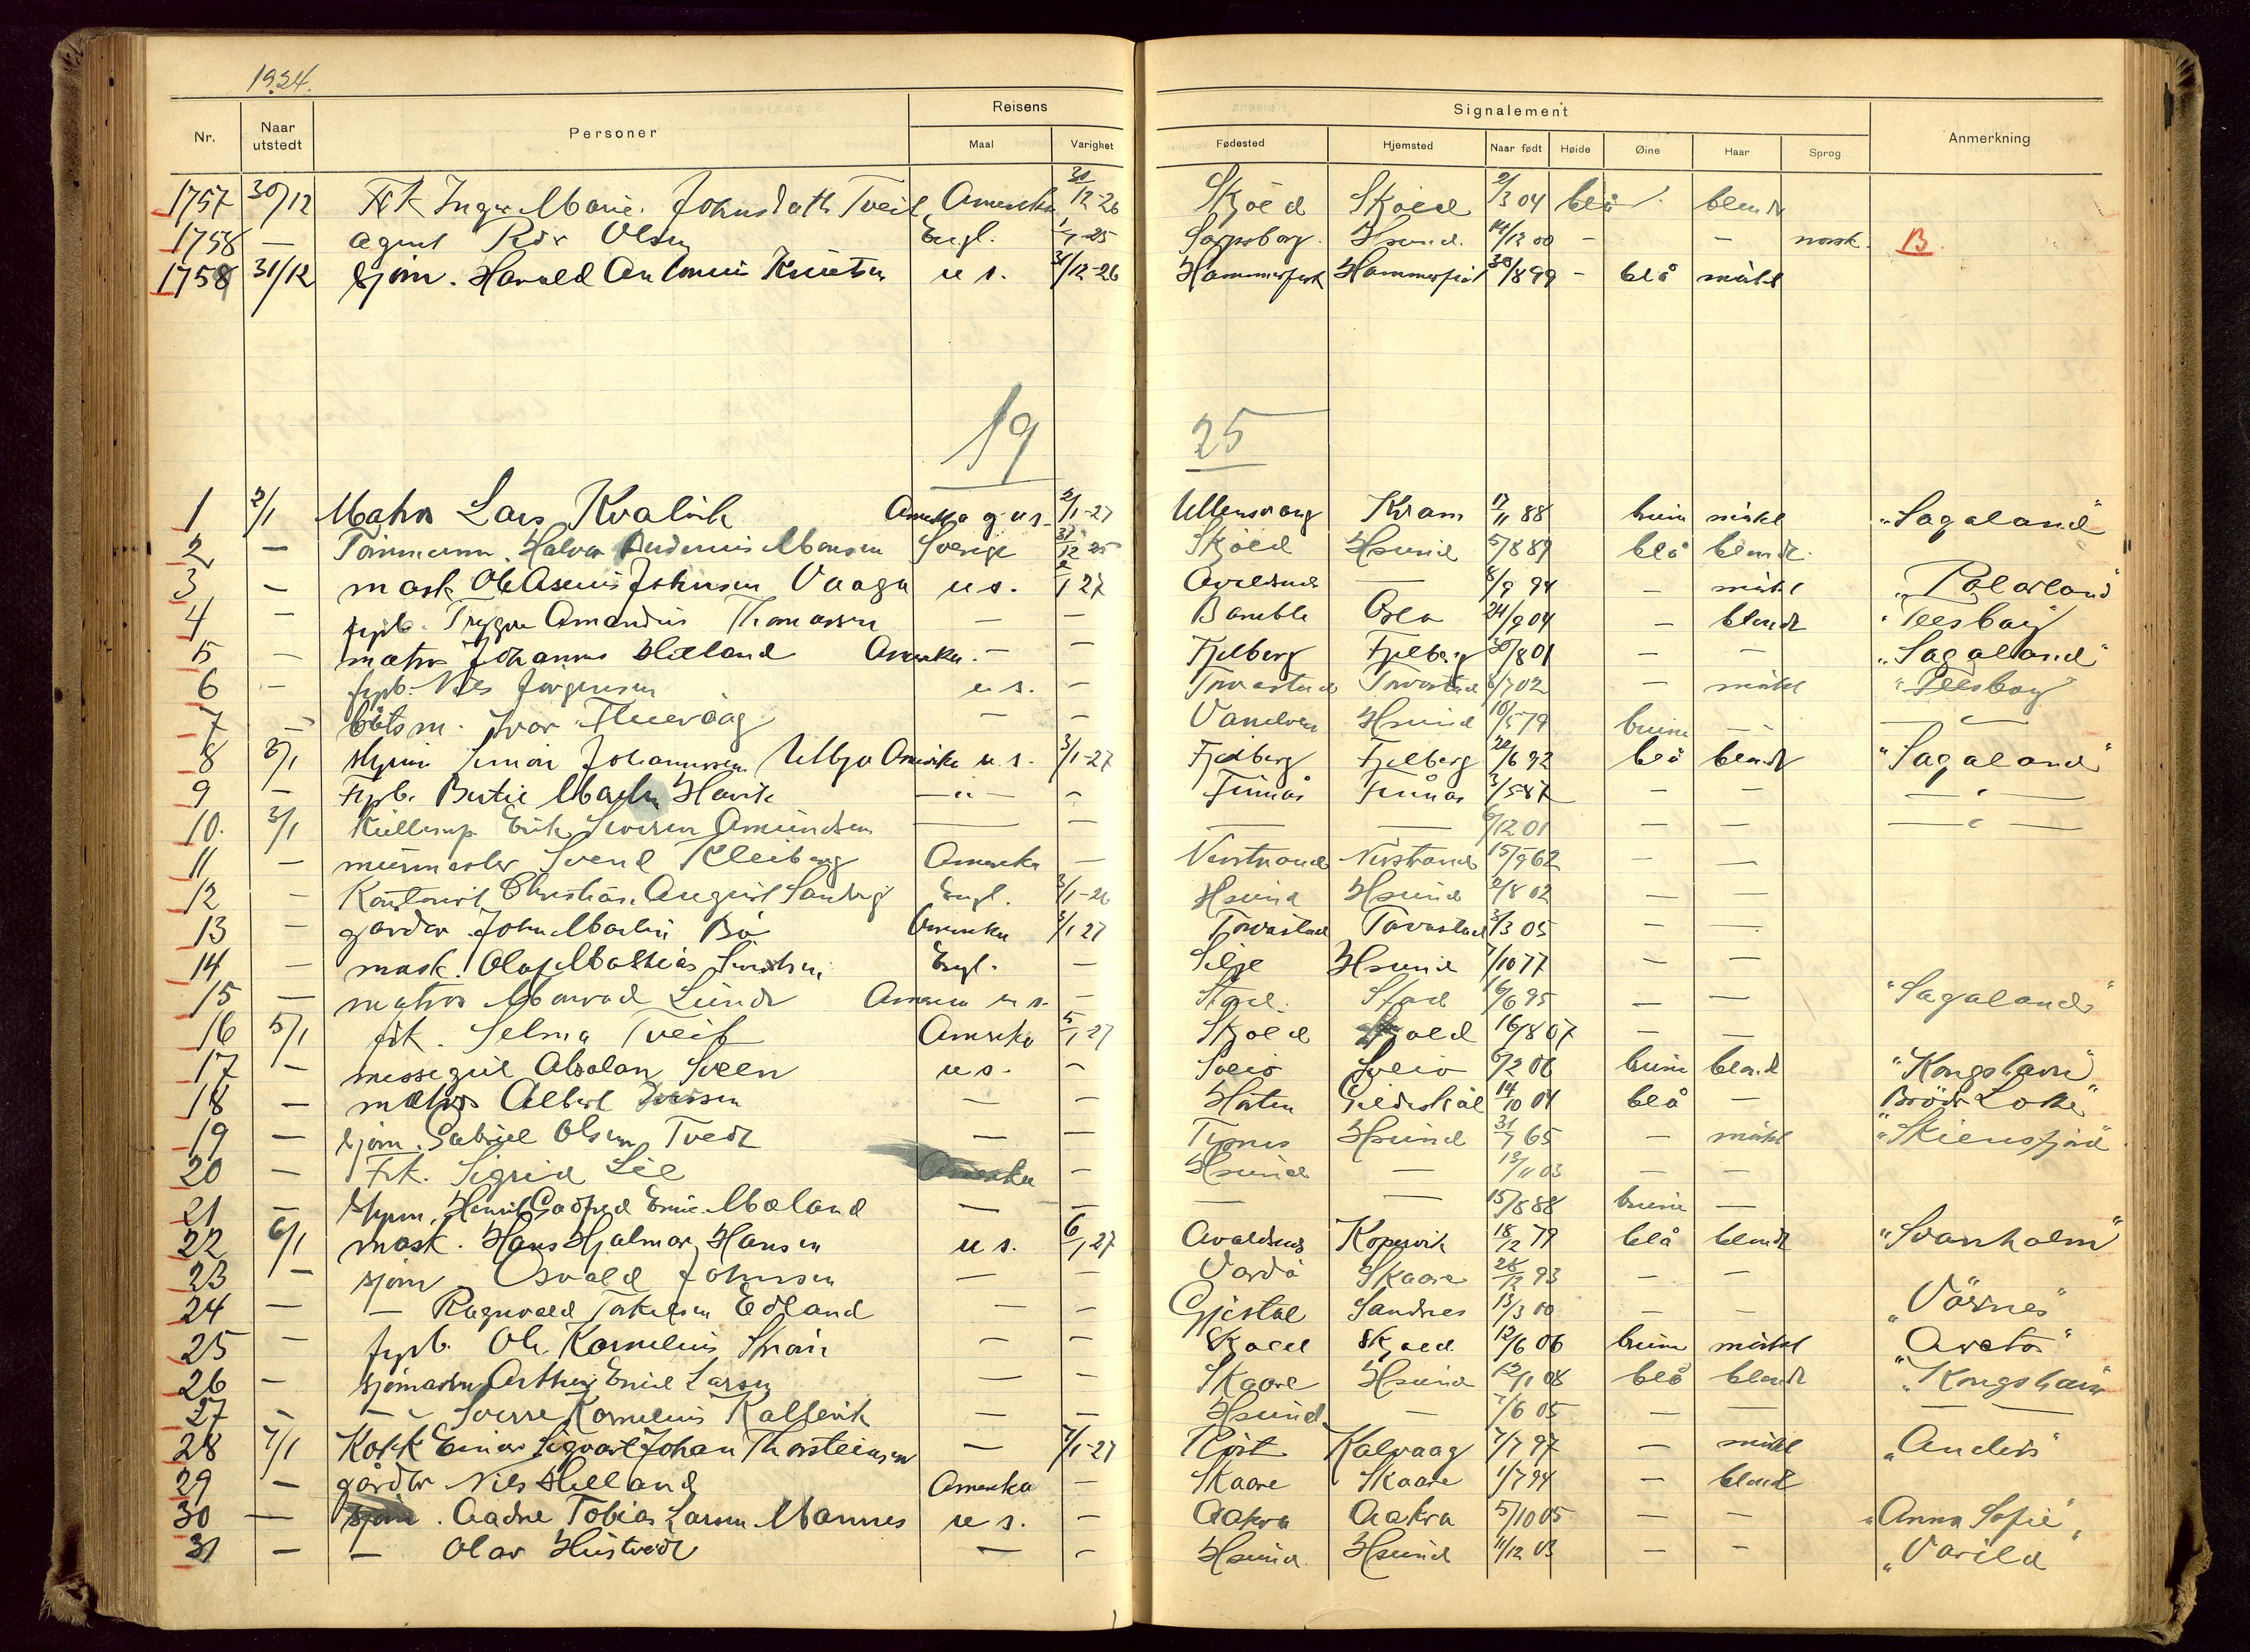 1924.
Nr. Naar utstedt Personer Reisens Maal Varighet Signalement Fødested Hjemsted Naar født Høide Øine Haar Sprog Anmerkning
1757 30/12 Frk Inger Marie Johnsdatter Tveit Amerika 30/12-26 Skjold Skjold 2/3 04 blå blondt
1758 — agent Olsen Engl. 1/7-25 Sarpsborg Hsund. 14/12 00 - - norsk. B.
1758 31/12 sjøm. Harald Antonius Knutsen u s. 31/12-26 Hammerfest Hammerfest 30/8 99 - blå mørkt
19 25
1 2/1 Matros Lars Kvalvik Amerika og u s. 2/1-27 Ullensvang Kvam 17/11 88 brun mørkt "Sagaland"
2 — Tømmerm. Halvor Andreas Monsen Sverige 31/12 25 Skjold Hsund 5/8 89 blå blondt.
3 — mask. Ole Asenius Johnsen Vaage u s. 2/1 27 Avaldsnes — 8/9 94 — mørkt "Polarland"
4 — fyrb. Trygve Amandus Thomassen — — Bamble Oslo 24/9 04 — blondt "Teesbay"
5 — matros Johannes Helland Amerika. — — Fjelberg Fjelberg 30/8 01 — — "Sagaland"
6 — fyrb. Nils Jørgensen u s. — Torvastad Torvastad 6/7 02 — mørkt "Teesbay"
7 — båtsm. Ivar — — Hsund 10/5 79 brun — — " —
8 3/1 Johannessen Amerika u s. 3/1-27 Fjelberg Fjelberg 22/6 92 blå blondt "Sagaland"
9 — Fyrb. Bertie Martin Havik — " — — Finnås Finnås 3/5 87 — — — " —
10. 3/1 Erik Iversen Amundsen — — — 6/12 01 — — — " —
11 — murmester Svend Kleiberg Amerika — Nerstrand Nerstrand 15/9 62 — —
12 — Kontorist Christian August Sandvig Engl. 3/1-26 Hsund Hsund 2/8 02 — —
13 — gårdbr. John Martin Bø Amerika 3/1 27 Torvastad Torvastad 3/3 05 — —
14 — mask. Olaf Mathias Engl. — Silje Hsund 7/10 77 — —
15 — matros Lunde Amerika u s. — Stord. Stord 16/6 95 — — "Sagaland"
16 5/1 frk. Selma Tveit Amerika 5/1 27 Skjold Skjold 16/8 07 — —
17 — messegut Absalon Sveen u s. — Sveio Sveio 6/2 06 brun blond "Kongshavn"
18 — matros Albert Iversen — — Horten Gildeskål 14/10 04 blå — Brødr "Loke"
19 — sjøm. Gabriel Olsen Tvedt — — Tysnes Hsund 31/7 65 — mørkt "Skiensfjord"
20 — Frk. Sigrid Lie Amerika — Hsund — 13/11 03 — —
21 — Styrm. Henrik Godfred Emil Mæland — — — — 15/8 88 brun —
22 6/1 mask. Hans Hjalmar Hansen u s. 6/1 27 Avaldsnes Kopervik 18/12 79 blå blondt "Svanholm"
23 — sjøm Osvald Johnsen — — Vardø Skaare 28/12 93 — —
24 — — Ragnvald Torkelsen Edland — — Gjestal Sandnes 13/3 00 — — "Vörnes"
25 — fyrb. Ole Kornelius — — Skjold Skjold 12/6 06 brun mørkt "Arcto"
26 — sjømann Arthur Emil Larsen — — Skaare Hsund 12/1 08 blå blondt "Kongshavn"
27 — — Sverre Kornelius — — Hsund — 7/6 05 — — — —
28 7/1 Kokk Einar Sigvart Johan Thorsteinsen — 7/1-27 Kalvaag 7/7 97 — mørkt "Anders"
29 — gårdbr Nils Helland Amerika — Skaare Skaare 1/7 94 — blondt
30 — sjøm. Aadne Tobias Larsen Mannes u s. — Aakra Aakra 5/10 05 — — "Anna Sofie"
31 — — Olav Hustvedt — — Hsund Hsund 11/12 03 — — "Varild"